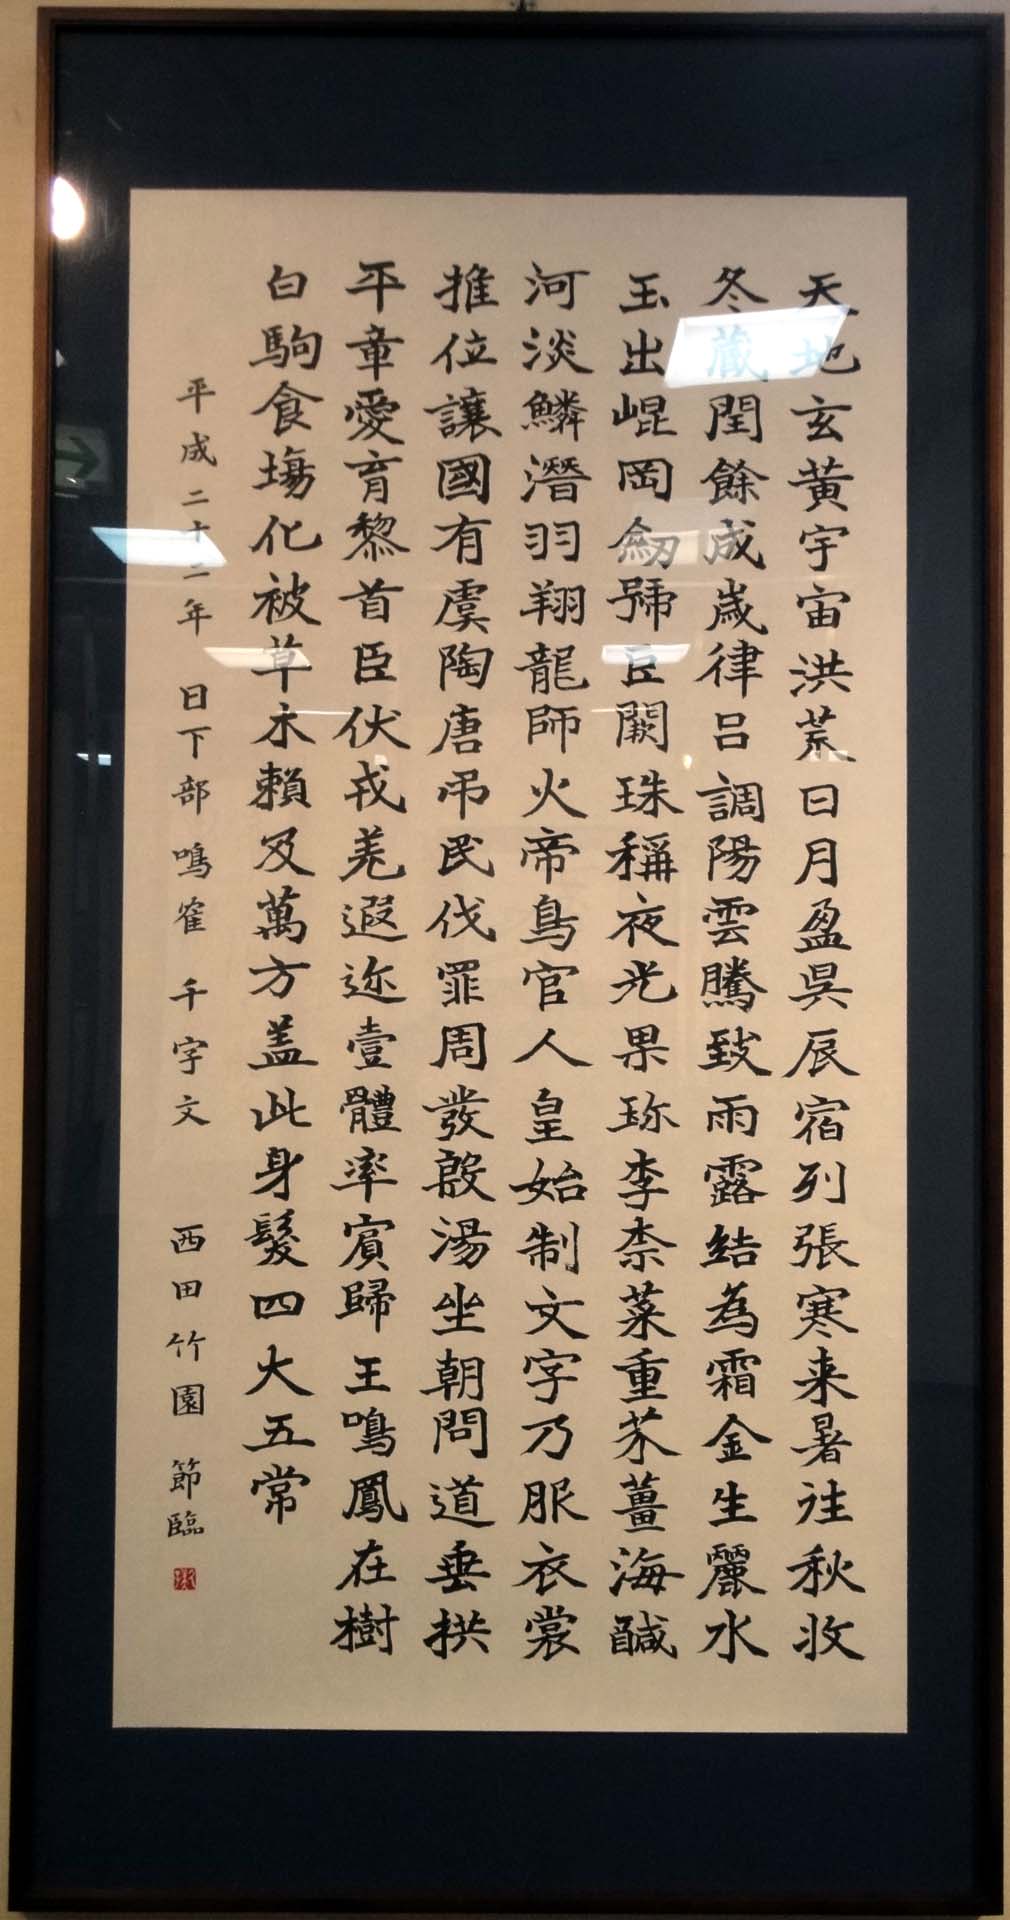 天地玄黄宇宙洪荒日月盈昃辰宿列張寒来暑往秋收
冬蔵閏餘成歳律呂調陽雲騰致雨露結為霜金生麗水
玉出崐岡劒號巨闕珠稱夜光果珎李柰菜重芥薑海鹹
河淡鱗潛羽翔龍師火帝鳥官人皇始制文字乃服衣裳
推位讓國有虞陶唐吊民伐罪周發殷湯坐朝問道垂拱
平章愛育黎首臣伏戎羌遐迩壹體率賓歸王鳴鳳在樹
白駒食場化被草木賴及萬方盖此身髮四大五常
平成二十二年 日下部鳴雀 千字文 西田竹園 節臨